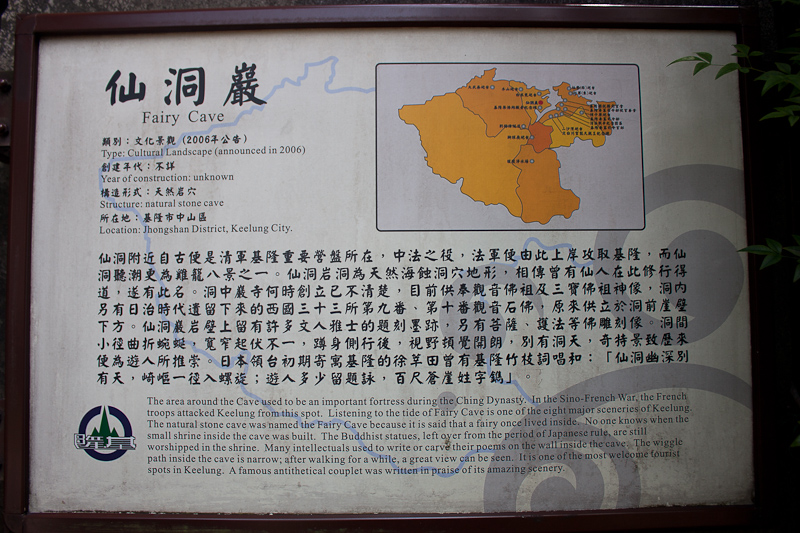 仙洞巖
Fairy Cave
類別：文化景觀（2006年公告）
Type: Cultural Landscape (announced in 2006)
創建年代：不詳
Year of construction: unknown
構造形式：天然岩穴
Structure: natural stone cave
所在地：基隆市中山區
Location: Jhongshan District, Keelung City.
仙洞附近自古便是清軍基隆重要營盤所在，中法之役，法軍便由此上岸攻取基隆，而仙
洞聽潮更為雞籠八景之一。仙洞岩洞為天然海蝕洞穴地形，相傳曾有仙人在此修行得
道，遂有此名。洞中巖寺何時創立已不清楚，目前供奉觀音佛祖及三寶佛祖神像，洞內
另有日治時代遺留下來的西國三十三所第九番、第十番觀音石佛，原來供立於洞前崖壁
下方。仙洞巖岩壁上留有許多文人雅士的題刻墨跡，另有菩薩、護法等佛雕刻像。洞間
小徑曲折蜿蜒，寬窄起伏不一，蹲身側行後，視野頓覺開朗，別有洞天，奇特景致歷來
便為遊人所推崇。日本領台初期寄寓基隆的徐莘田曾有基隆竹枝詞唱和：「仙洞幽深別
有天，崎嶇一徑入螺旋；遊人多少留題詠，百尺蒼崖姓字鐫。」。
The area around the Cave used to be an important fortress during the Ching Dynasty. In the Sino-French War, the French
troops attacked Keelung from this spot. Listening to the tide of Fairy Cave is one of the eight major sceneries of Keelung.
The natural stone cave was named the Fairy Cave because it is said that a fairy once lived inside. No one knows when the
small shrine inside the cave was built. The Buddhist statues, left over from the period of Japanese rule, are still
worshipped in the shrine. Many intellectuals used to write or carve their poems on the wall inside the cave. The wiggle
path inside the cave is narrow; after walking for a while, a great view can be seen. It is one of the most welcome tourist
spots in Keelung. A famous antithetical couplet was written in praise of its amazing scenery.